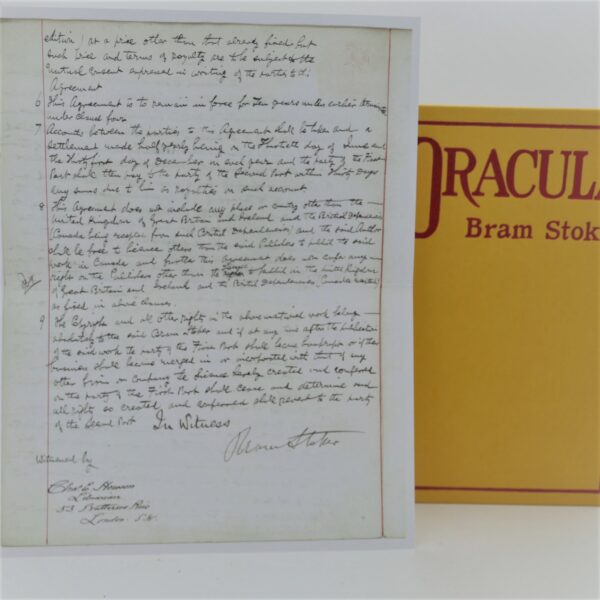 edition) at a price other than that already fixed but
such price and terms of royalty are to be subject to the
mutual consent expressed in writing of the parties to this
Agreement
6 This Agreement is to remain in force for Ten years unless earlier
under clause four
7 Accounts between the parties to this Agreement shall be taken and a
settlement made half yearly viz on the Thirtieth day of June and
the Thirty first day of December in each year and the party of the First
Part shall then pay to the party of the Second Part within Thirty Days
any sums due to him as royalties on such account
8 This Agreement does not include any place or country other than the
United Kingdom of Great Britain and Ireland and the British Dependencies
(Canada being excepted from such British Dependencies) and the said Author
shall be free to licence others than the said Publishers to publish the said
work in Canada and further this Agreement does not confer any
right on the Publishers other than to publish in the United Kingdom
of Great Britain and Ireland and the British Dependencies, Canada excepted
as fixed in above clauses.
9 The Copyright and all other rights in the above mentioned work belong
absolutely to the said Bram Stoker and if at any time after the publication
of the said work the party of the First Part shall become bankrupt or if their
business shall become merged in or incorporated with that of any
other firm or Company the licence hereby created and conferred
on the party of the First Part shall cease and determine and
all rights so created and conferred shall revert to the party
of the Second Part In Witness
Bram Stoker
Witnessed by
Librarian
London S.W.
DRACULA
Bram Stok